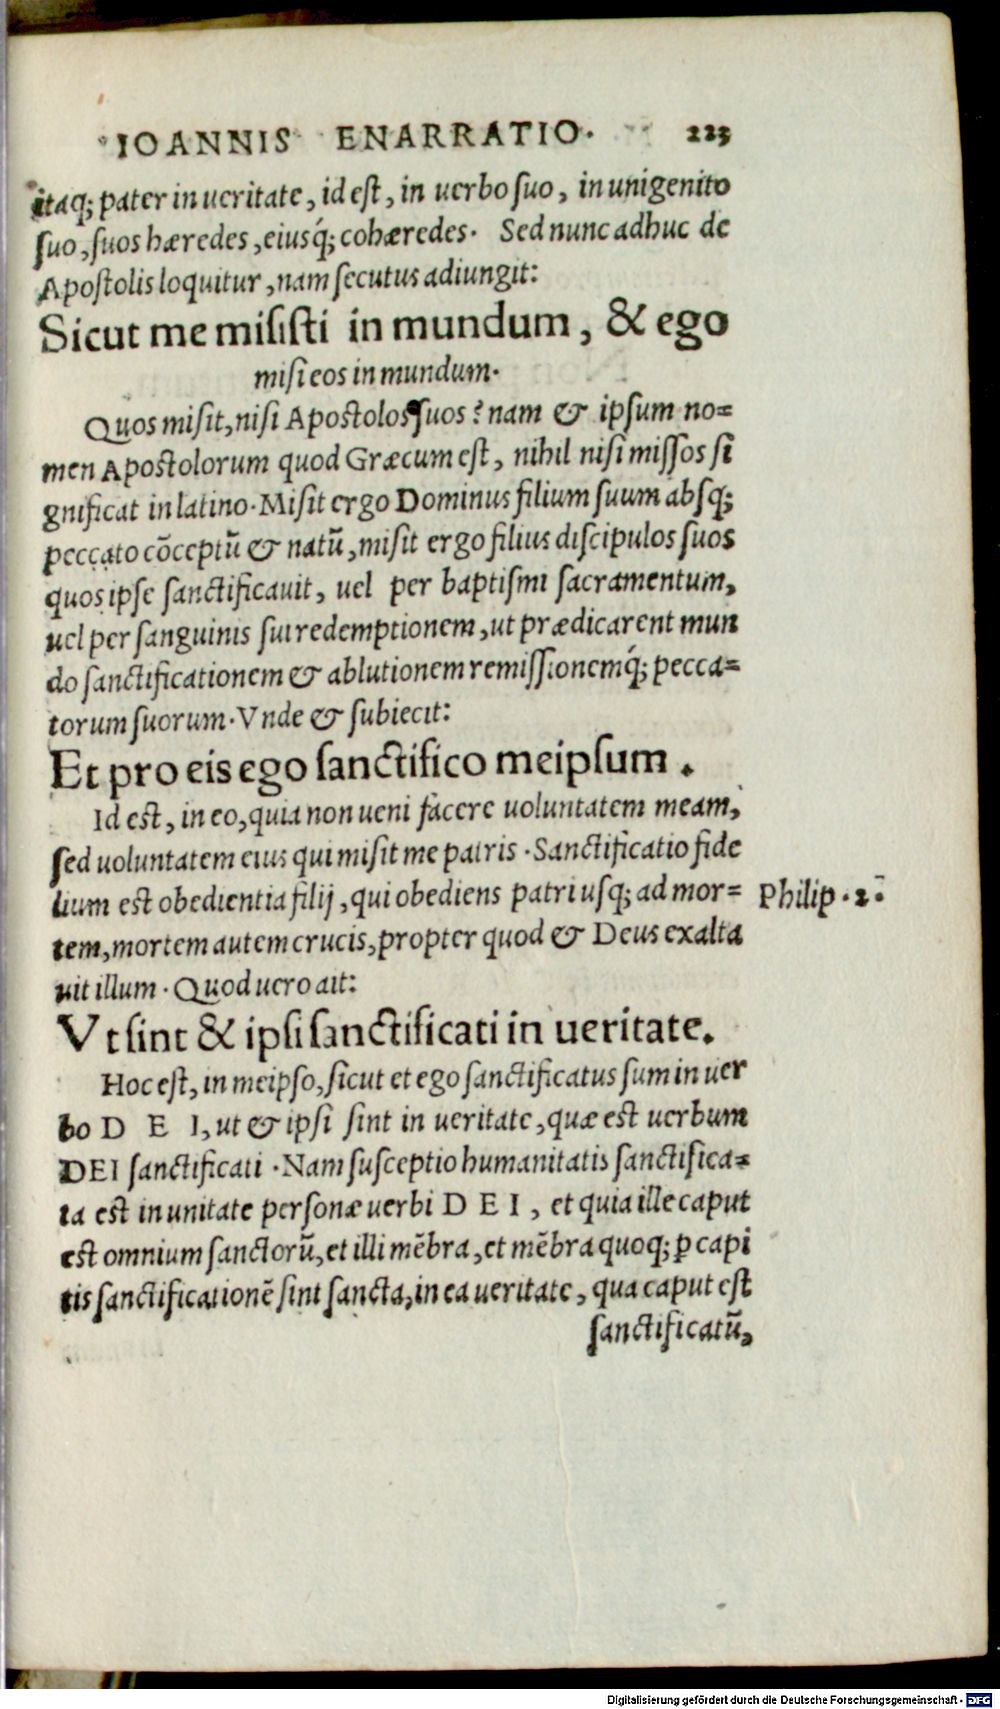 IOANNIS ENARRATIO. 223
itaq; pater in ueritate, id est, in uerbo suo, in unigenito
suo, suos hæredes, eiusq́; cohæredes. Sed nunc adhuc de
Apostolis loquitur, nam secutus adiungit:
Sicut me misisti in mundum, & ego
misi eos in mundum.
Quos misit, nisi Apostolos suos? nam & ipsum no=
men Apostolorum quod Græcum est, nihil nisi missos si
gnificat in latino. Misit ergo Dominus filium suum absq;
peccato cōceptū & natū, misit ergo filius discipulos suos
quos ipse sanctificauit, uel per baptismi sacramentum,
uel per sanguinis sui redemptionem, ut prædicarent mun
do sanctificationem & ablutionem remissionemq́; pecca=
torum suorum. Vnde & subiecit:
Et pro eis ego sanctifico meipsum.
Id est, in eo, quia non ueni facere uoluntatem meam,
sed uoluntatem eius qui misit me patris. Sanctificatio fide
lium est obedientia filij, qui obediens patri usq; ad mor=
Philip. 2.
tem, mortem autem crucis, propter quod & Deus exalta
uit illum. Quod uero ait:
Vt sint & ipsi sanctificati in ueritate.
Hoc est, in meipso, sicut et ego sanctificatus sum in uer
bo D E I, ut & ipsi sint in ueritate, quæ est uerbum
DEI sanctificati. Nam susceptio humanitatis sanctifica=
ta est in unitate personæ uerbi D E I, et quia ille caput
est omnium sanctorū, et illi mēbra, et mēbra quoq; ꝑ capi
tis sanctificationē sint sancta, in ea ueritate, qua caput est
sanctificatū,
Digitalisierung gefördert durch die Deutsche Forschungsgemeinschaft - DFG